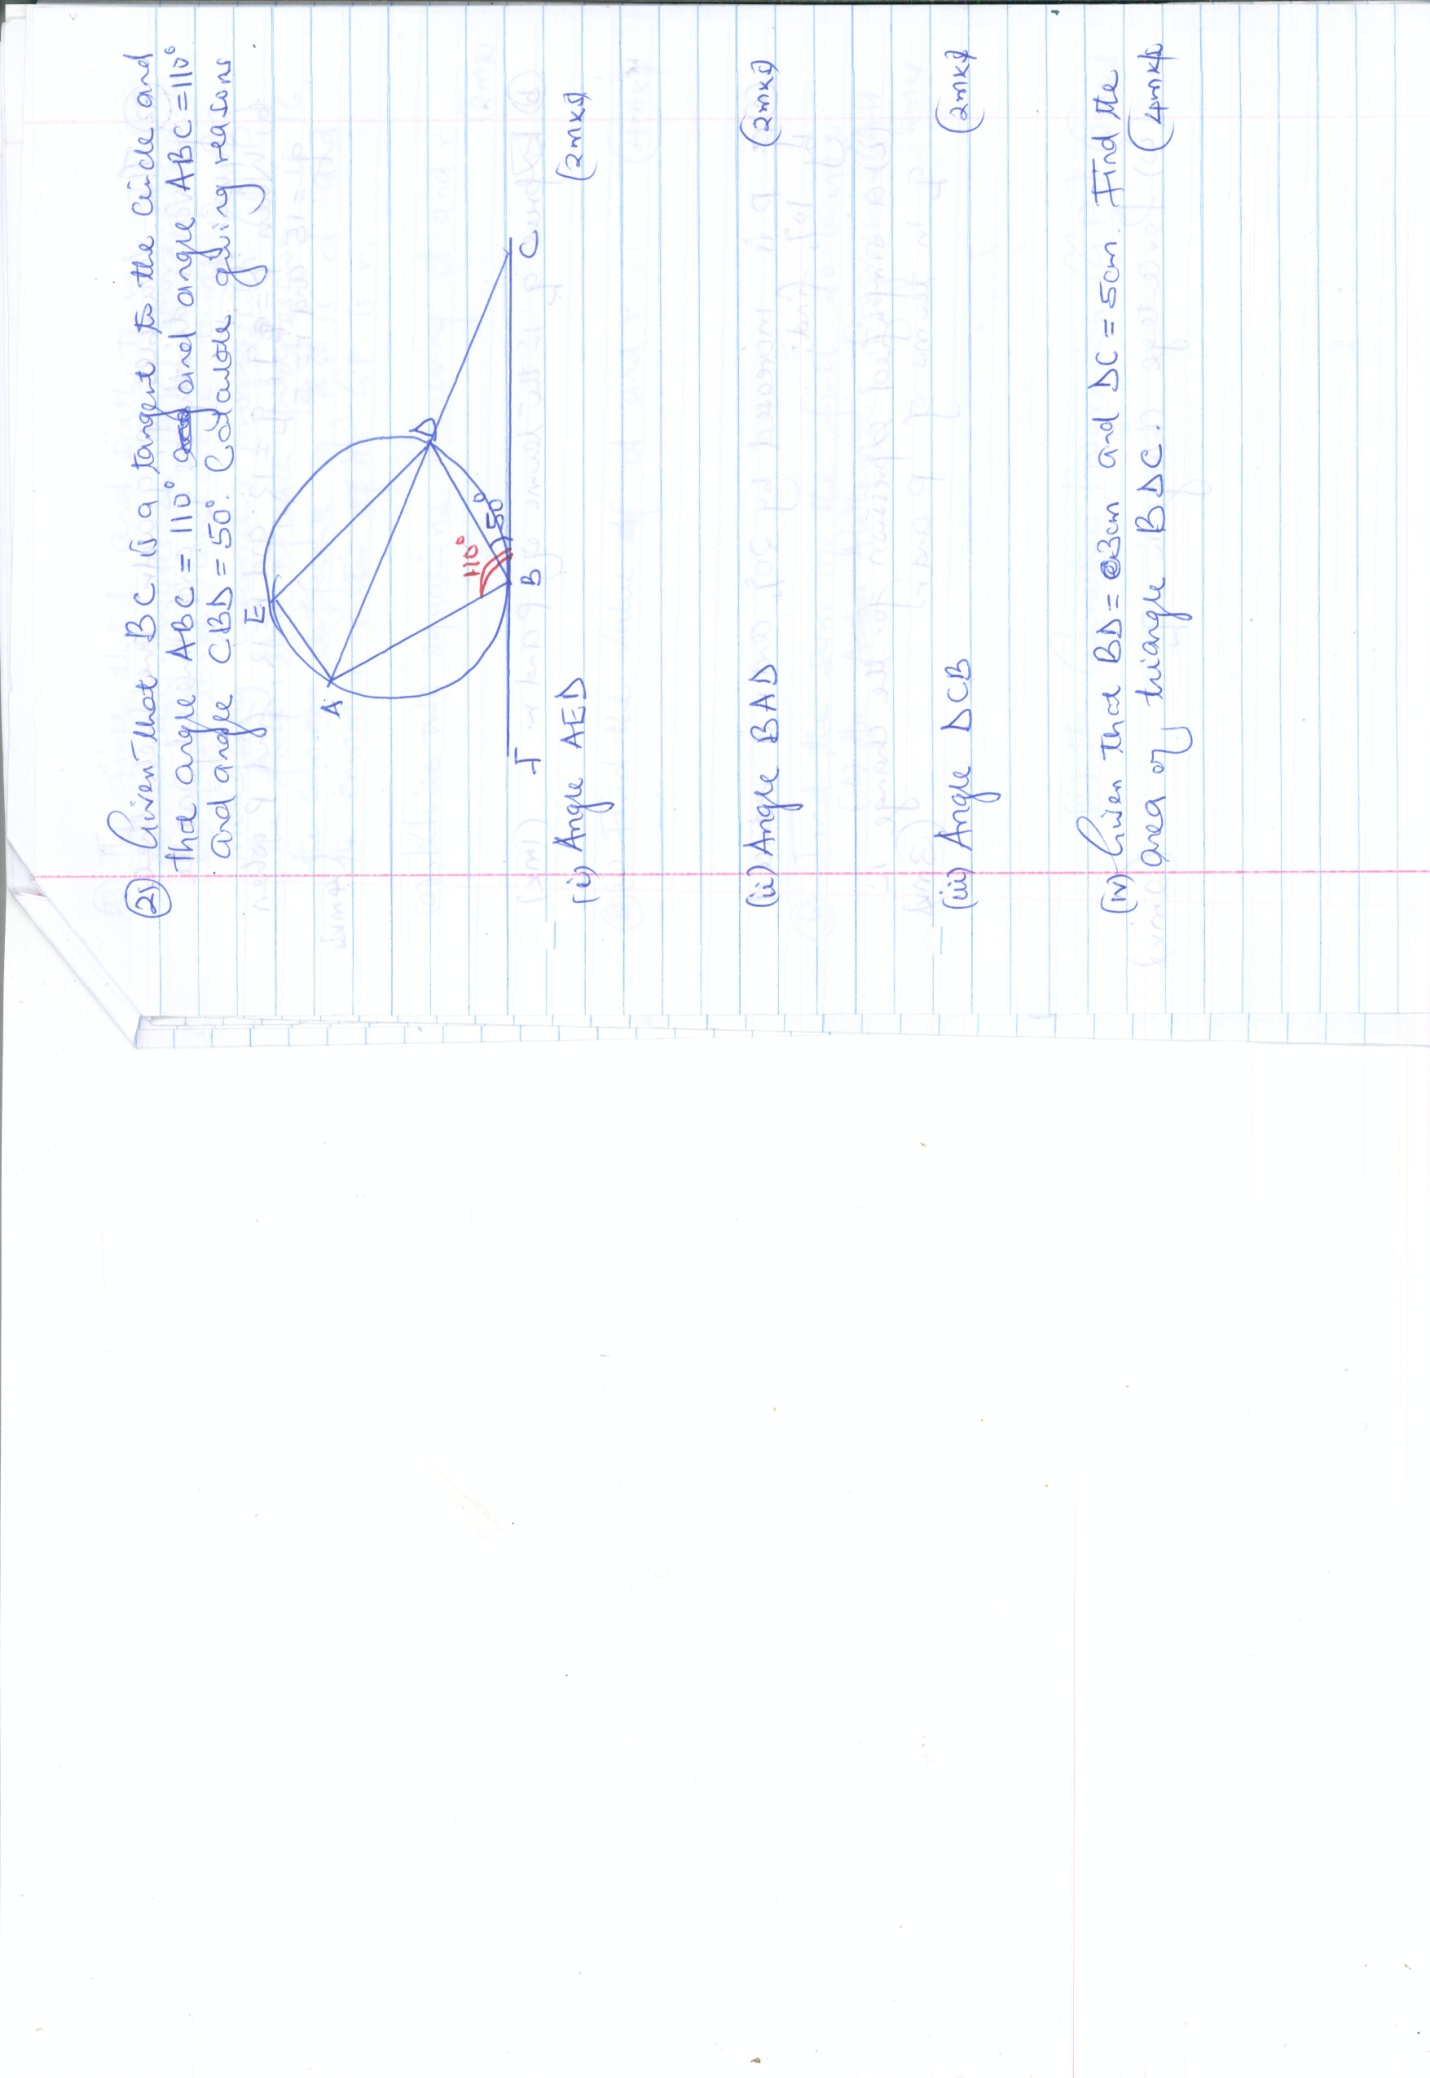 21) Given that BC is a tangent to the circle and
that angle ABC = 110° and angle ABC = 110°
and angle CBD = 50°. Calculate giving reasons
E
A
D
110°
50°
B
C
(i) Angle AED (2mks)
(ii) Angle BAD (2mks)
(iii) Angle DCB (2mks)
(iv) Given that BD = 3cm and DC = 5cm. Find the
area of triangle BDC. (4mks)